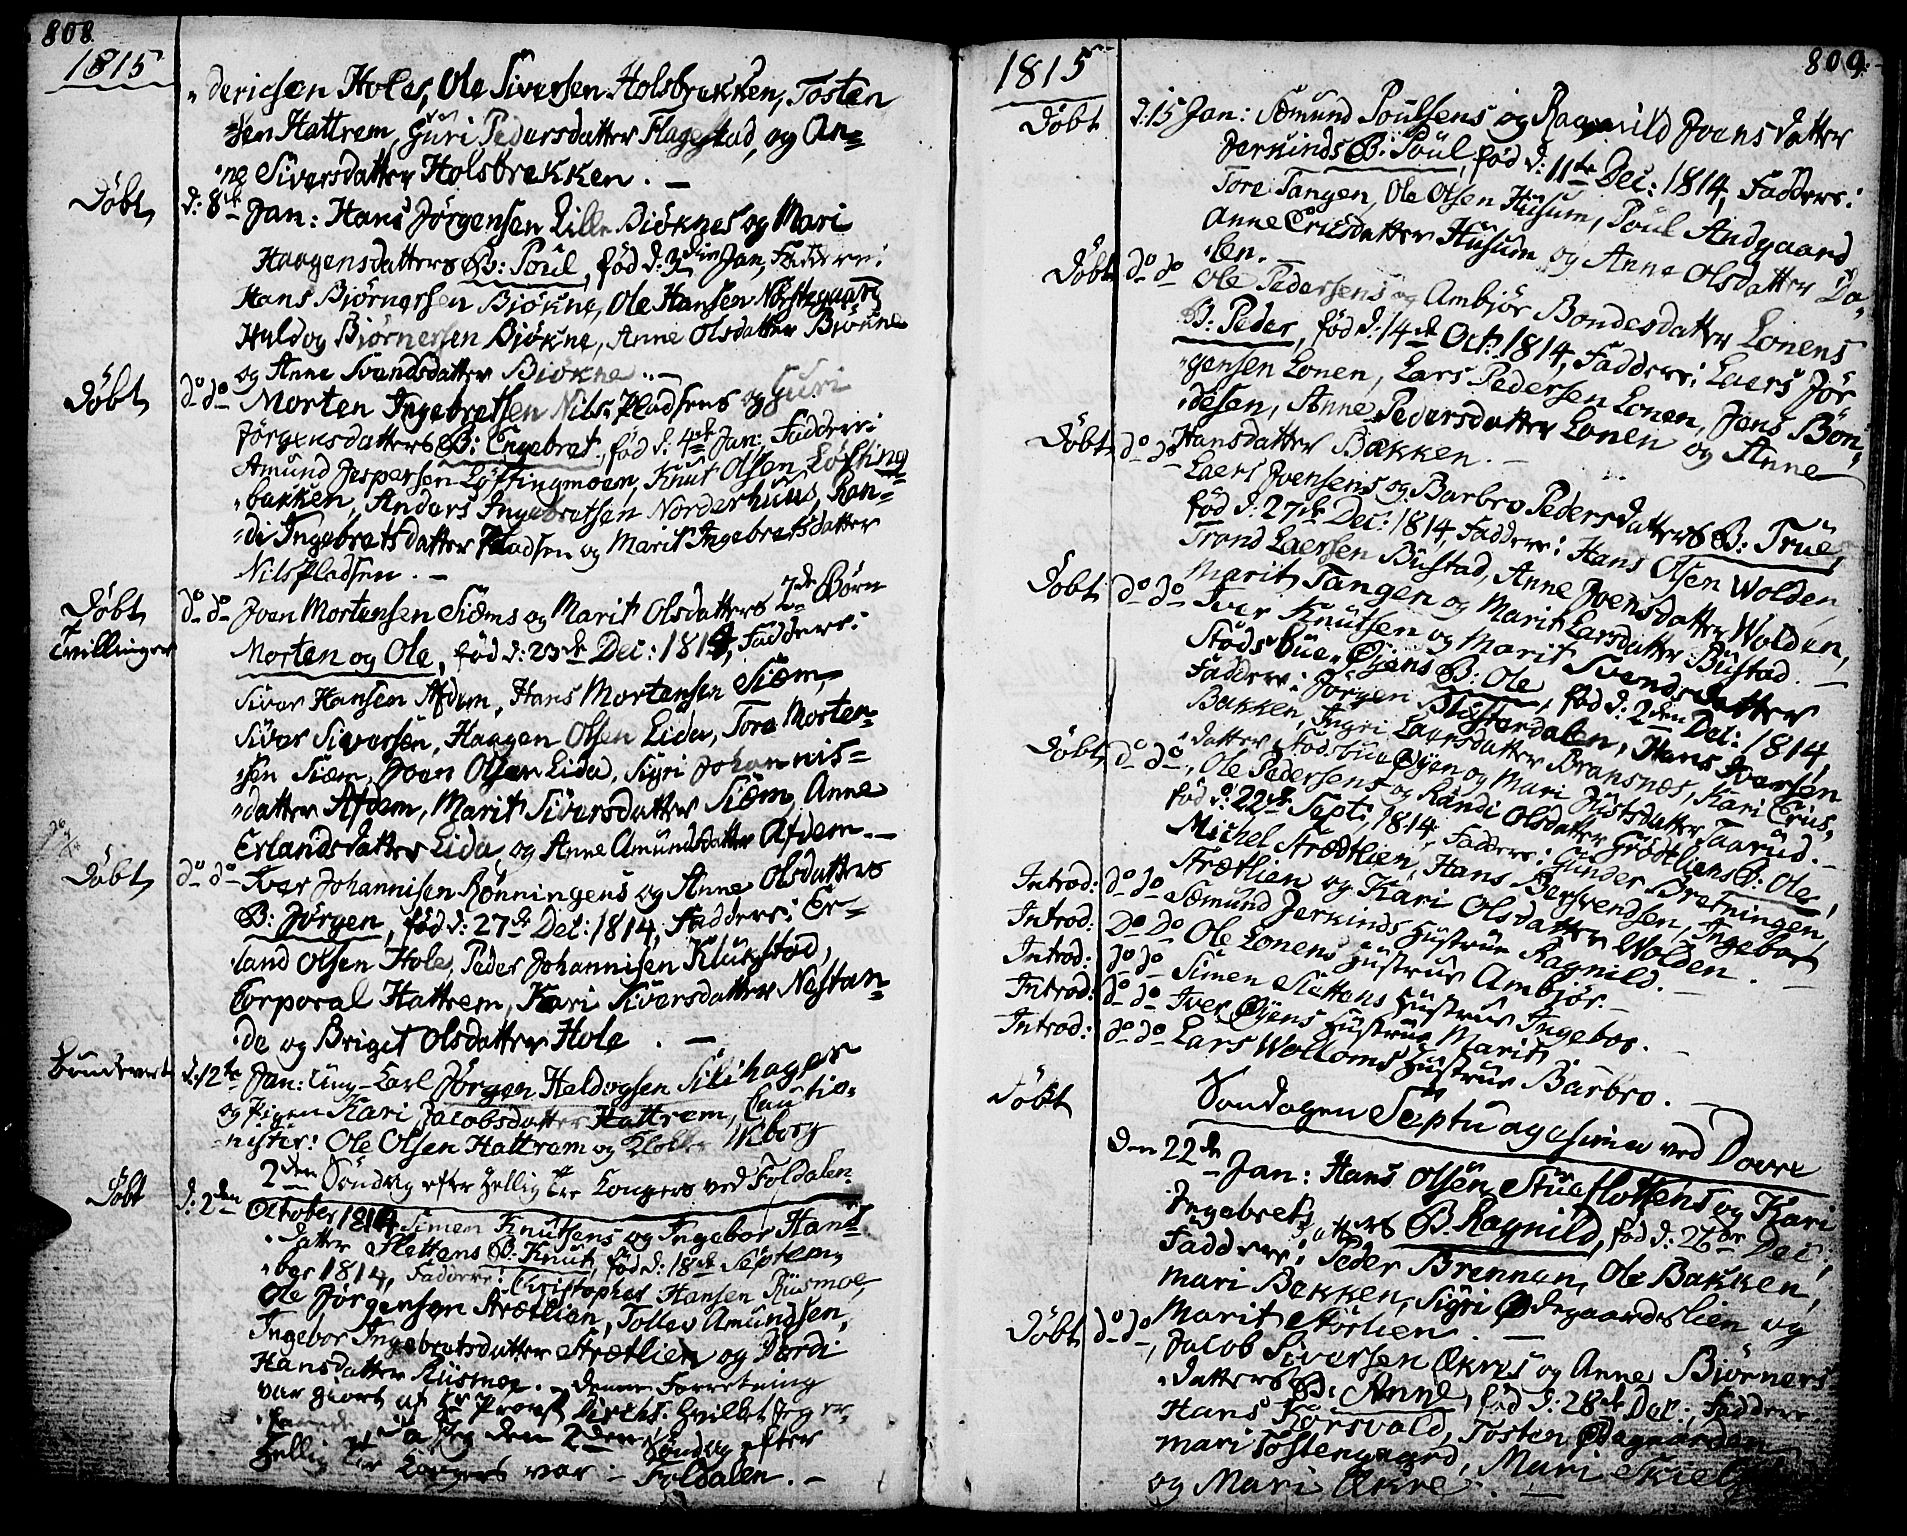 808.
1815
„dericsen Holes, Ole Siversen Holsbrekken, Tosten
„sen Hattrem, Guri Pedersdatter Flagestad, og An„
„ne Siversdatter Holsbrekken. —
Döbt d: 8de Jan: Hans Jørgensen Lille Biøknes og Mari
Haagensdatters B: Poul, fød d: 3die Jan, Faddere:
Hans Biørnersen Biøkne, Ole Hansen Norstegaard
Huldog Biørnersen Biøkne, Anne Olsdatter Biøkne
og Anne Svendsdatter Biøkne. —
Döbt do do Morten Ingebretsen Nils-Pladsens og Guri
Jørgensdatters B: Engebret, fød d: 4de Jan: Faddere:
Amund Jespersen Løftingmoem, Knut Olsen Løfting
„bakken, Anders Ingebretsen Norderhuus, Ran„
„di Ingebretsdatter Pladsen og Marit Ingebretsdatter
NilsPladsen. —
Döbt do do Joen Mortensen Siæms og Marit Olsdatters 2de Børn
Tvillinger Morten og Ole, fød d: 23de Dec: 1814, Faddere:
Siver Hansen Afdem, Hans Mortensen Siæm,
Siver Siversen, Haagen Olsen Lida, Tore Morten„
„sen Siæm, Joen Olsen Lida, Sigri Johannis„
„datter Afdem, Marit Siversdatter Siæm, Anne
Erlandsdatter Lida, og Anne Amundsdatter Afdem. —
Döbt do do Iver Johannisen Rønningens og Anne Olsdatters
B: Jørgen, fød d: 27de Dec: 1814, Faddere: Er„
„land Olsen Hole, Peder Johannisen Klukstad,
Corporal Hattrem, Kari Siversdatter Nestan„
„de og Briget Olsdatter Hole. —
Brudeviet d: 12te Jan: Ung-Karl Jørgen Heldogsen Silihager
og Pigen Kari Jacobsdatter Hattrem, Cautio„
„nister: Ole Olsen Hattrem og Klokker Wiborg
2den Søndag efter Hellig Tre Kongers ved Foldalen.
Döbt d: 2den October 1814 Simen Knutsens og Ingebor Hans„
„datter Slettens B: Knut, fød d: 18de Septem„
„ber 1814, Faddere: Christopher Hansen Riusmoe,
Ole Jørgensen Strætlien, Tollev Amundsen,
Ingebor Ingebretsdatter Strætlien og Dordi
Hansdatter Riusmoe. — denne Forretning
var giort af Hr Provst hvillket Jeg er„
da Jeg den 2den Søndag efter
Hellig Tre Kongers var i Foldalen. —
1815
809.
Döbt d: 15 Jan: Sæmund Poulsens og Ragnild Joensdatter
Jerkinds B: Poul, fød d: 11te Dec: 1814, Faddere:
Tore Tangen, Ole Olsen Husum, Poul Andgaard,
Anne Ericsdatter Husum og Anne Olsdatter Da„
„len. —
Döbt do do Ole Pedersens og Ambjør Bondesdatter Lonens
B: Peder, fød d: 14de Oct: 1814, Faddere: Laers Jør„
„gensen Lonen, Lars Pedersen Lonen, Jens Bon„
„desen, Anne Pedersdatter Lonen og Anne
Hansdatter Bækken. —
Döbt do do Laers Joensens og Barbro Pedersdatters B: True,
fød d: 27de Dec: 1814, Faddere: Hans Olsen Wolden,
Trond Laersen Bustad, Anne Joensdatter Wolden,
Marit Tangen og Marit Larsdatter Bustad. —
Döbt do do Iver Knutsen og Marit Svendsdatter
Stodsbue„Øyens B: Ole, fød d: 2den Dec: 1814,
Faddere: Jørgen Blæsterdalen, Hans Iversen
Bakken, Ingri Laersdatter Bransnes, Kari Erics„
„datter Stodsbue Øyen og Mari Justsdatter Taarud. —
Döbt do do, Ole Pedersens og Randi Olsdatter Grødtliens B: Ole,
fød d: 22de Sept: 1814, Faddere: Gunder Bretningen,
Michel Strædtlien, Hans Bersvendsen, Ingebor
Strætlien og Kari Olsdatter Wolden. —
Introd: do do Sæmund Jerkinds Hustrue Ragnild. —
Introd: Do Do Ole Lonens Hustrue Ambjør. —
Introd: do do Simen Slettens Hustrue Ingebor. —
Introd: do do Iver Øyens Hustrue Marit.
Introd: do do Lars Wolloms Hustrue Barbro. —
Søndagen Septuagesima ved Dovre
Döbt den 22de Jan: Hans Olsen Stueflottens og Kari
Ingebretsdatters B. Ragnild, fød d: 26de Dec:,
Faddere: Peder Brennen, Ole Bakken,
Mari Bekken, Sigri Ødegaardslien og
Marit Storlien. —
Döbt do do, Jacob Siversen Ækres og Anne Biørners„
„datters B: Anne, fød d: 28de Dec:, Faddere
Hans Korsvold, Tosten Ødegaarden
Mari Tostengaard, Mari
og Mari Ækre. —